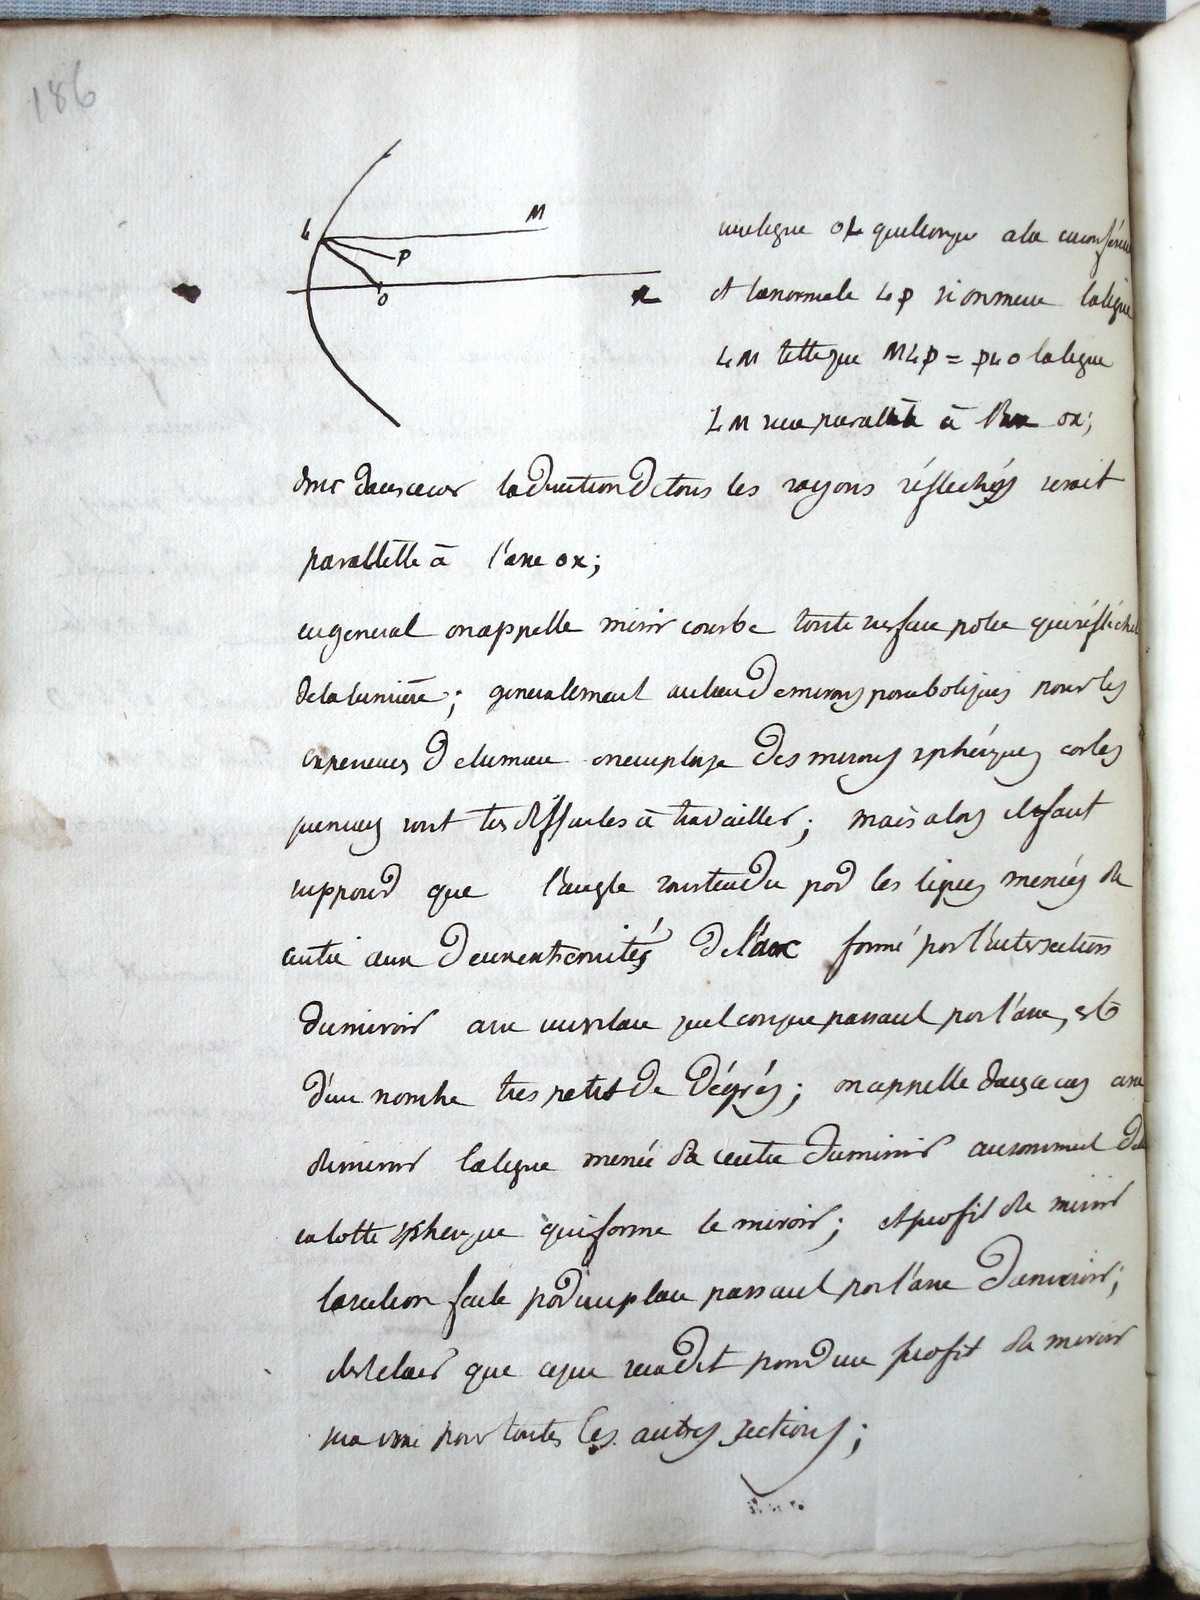 186
L M
P
O x
une ligne OL quelconque a la circonférence
et la normale LP si on mene la ligne
LM telle que MLP = PLO la ligne
LM sera parallele à l'axe ox;
donc dans ce cas la direction de tous les rayons réfléchis serait
parallelle à l'axe ox;
en general on appelle miroir courbe toute surface polie qui réfléchit
de la lumiere; generalement au lieu de miroirs paraboliques pour les
experiences de lumiere on employe des miroirs sphériques car les
premiers sont tres difficiles à travailler; mais alors il faut
supposer que l'angle soustendu par les lignes menées du
centre aux deux extremités de l'arc formé par l'intersection
du miroir avec un plan quelconque passant par l'axe, est
d'un nombre tres petit de dégrés; on appelle dans ce cas axe
du miroir la ligne menée du centre du miroir au sommet de la
calotte spherique qui forme le miroir; et profil du miroir
la section faite par un plan passant par l'axe du miroir;
il est clair que ce que sera dit pour un profil du miroir
sera vrai pour toutes les autres sections;